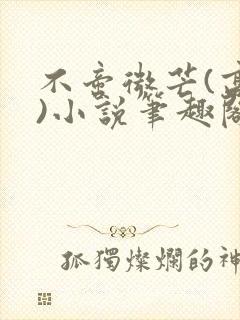 不啻微芒(高
)小說筆趣閣
孤獨燦爛的神